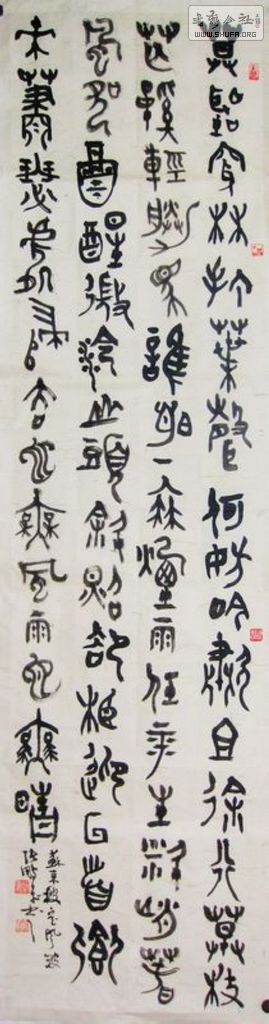 書藝公社
WWW.SHUFA.ORG
莫聽穿林打葉聲何妨吟嘯且徐行竹杖
芒鞵輕勝馬誰怕一蓑煙雨任平生料峭春
風吹酒醒微冷山頭斜照卻相迎回首向
來蕭瑟處歸去也無風雨也無晴
蘇東坡定風波